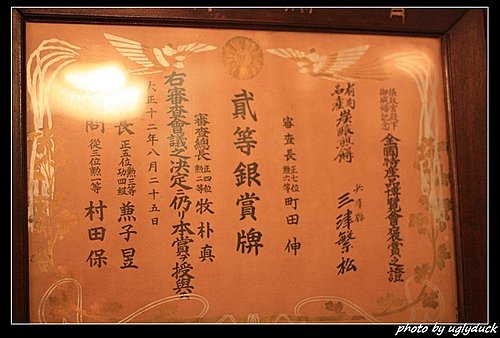 摂政宮殿下
御成婚記念
全國特産品博覽會褒賞之證
有馬名産
炭酸煎餅
兵庫縣
三津繁松
貳等銀賞牌
審査長 正七位勲六等 町田伸
審査總長 正四位勲二等 牧朴真
右審査會議之決定ニ仍リ本賞ヲ授與ス
大正十二年八月二十五日
長 正五位勲三等功四級 兼子昱
問 從三位勲一等 村田保
photo by uglyduck